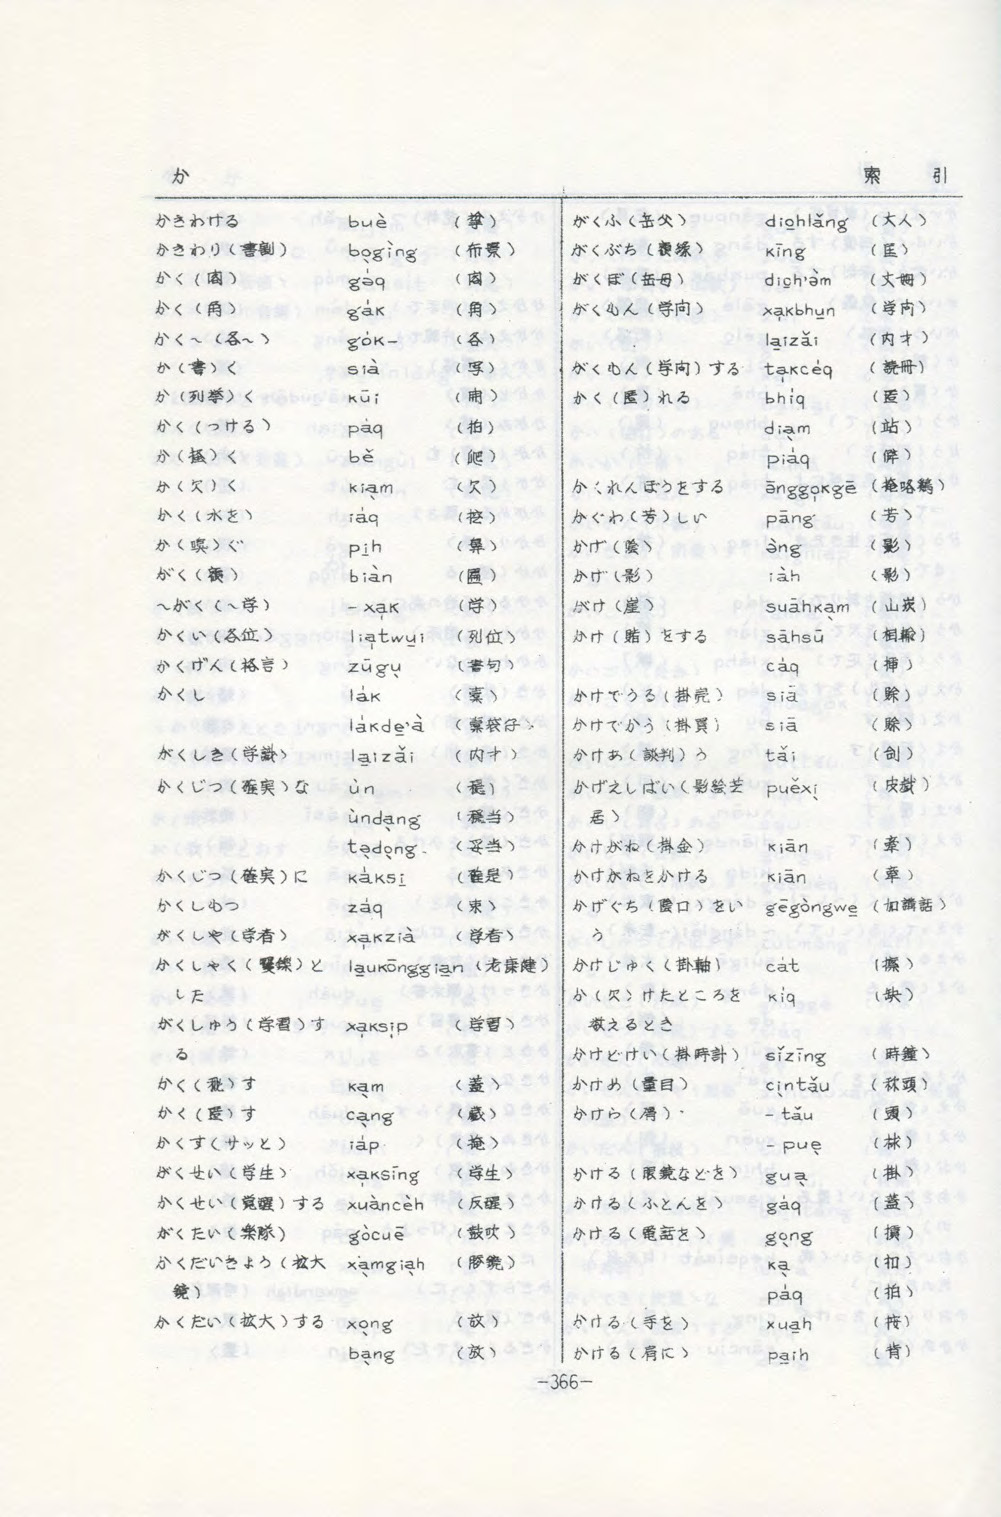 か
索 引
かきわける buè (擘)
かきわり(書割) bo̤gìng (布景)
かく(閣) gáq (閣)
かく(角) gák (角)
かく〜(各〜) gók– (各)
か(書)く sià (写)
か(列挙)く kūi (開)
かく(つける) páq (拍)
か(掻)く bě (爬)
か(欠)く kia̤m (欠)
かく(水を) iáq (挖)
か(嗅)ぐ pi̲h (鼻)
がく(額) biàn (匾)
〜がく(〜学) –xa̤k (学)
かくい(各位) lia̤twui̲ (列位)
かくげん(格言) zūgṳ (書句)
かくし lák (橐)
lákde̲'à (橐袋仔)
がくしき(学識) la̲izǎi (内才)
かくじつ(確実)な ùn (穏)
ùnda̤ng (穏当)
ta̤do̤ng (妥当)
かくじつ(確実)に káksi̲ (確是)
かくしもつ záq (束)
がくしゃ(学者) xa̤kzià (学者)
かくしゃく(矍鑠)と la̲ukōnggia̲n (老康健)
した
がくしゅう(学習)す xa̤ksi̤p (学習)
る
かく(秘)す ka̤m (蓋)
かく(匿)す ca̤ng (蔵)
かくす(サッと) iáp (掩)
がくせい(学生) xa̤ksīng (学生)
かくせい(覚醒)する xuàncèh (反醒)
がくたい(楽隊) gòcuē (鼓吹)
かくだいきょう(拡大 xa̤mgia̤h (膨鏡)
鏡)
かくだい(拡大)する xo̤ng (放)
ba̤ng (放)
がくふ(岳父) di̲ohlǎng (丈人)
がくぶち(額縁) kīng (匡)
がくぼ(岳母) di̲oh'ḿ (丈姆)
がくもん(学问) xa̤kbhu̲n (学问)
la̲izǎi (内才)
がくもん(学问)する ta̤kcéq (読冊)
かく(匿)れる bhíq (匿)
dia̤m (站)
piáq (僻)
かくれんぼうをする ānggo̤kgē (掩咯鶏)
かぐわ(芳)しい pāng (芳)
かげ(陰) àng (影)
かげ(影) iàh (影)
がけ(崖) suāhka̤m (山崁)
かけ(賭)をする sāhsū (相輸)
cáq (挿)
かけでうる(掛売) siā (賒)
かけでかう(掛買) siā (賒)
かけあ(談判)う tǎi (刣)
かげえしばい(影絵芝 puěxi̤ (皮戯)
居)
かけがね(掛金) kiān (牽)
かけがねをかける kiān (牽)
かげぐち(陰口)をい gēgòngwe̲ (加講話)
う
かけじゅく(掛軸) cát (擦)
か(欠)けたところを kíq (缺)
数えるとき
かけどけい(掛時計) sǐzīng (時鐘)
かけめ(量目) ci̤ntǎu (秤頭)
かけら(屑) –tǎu (頭)
–pue̤ (柿)
かける(眼鏡などを) gua̤ (掛)
かける(ふとんを) gáq (蓋)
かける(電話を) go̤ng (摃)
ka̤ (扣)
páq (拍)
かける(手を) xua̲h (按)
かける(肩に) pa̲ih (背)
–366–